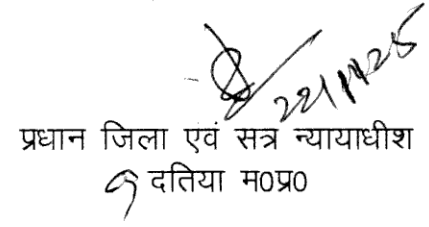 प्रधान जिला एवं सत्र न्यायाधीश
दतिया म0प्र0